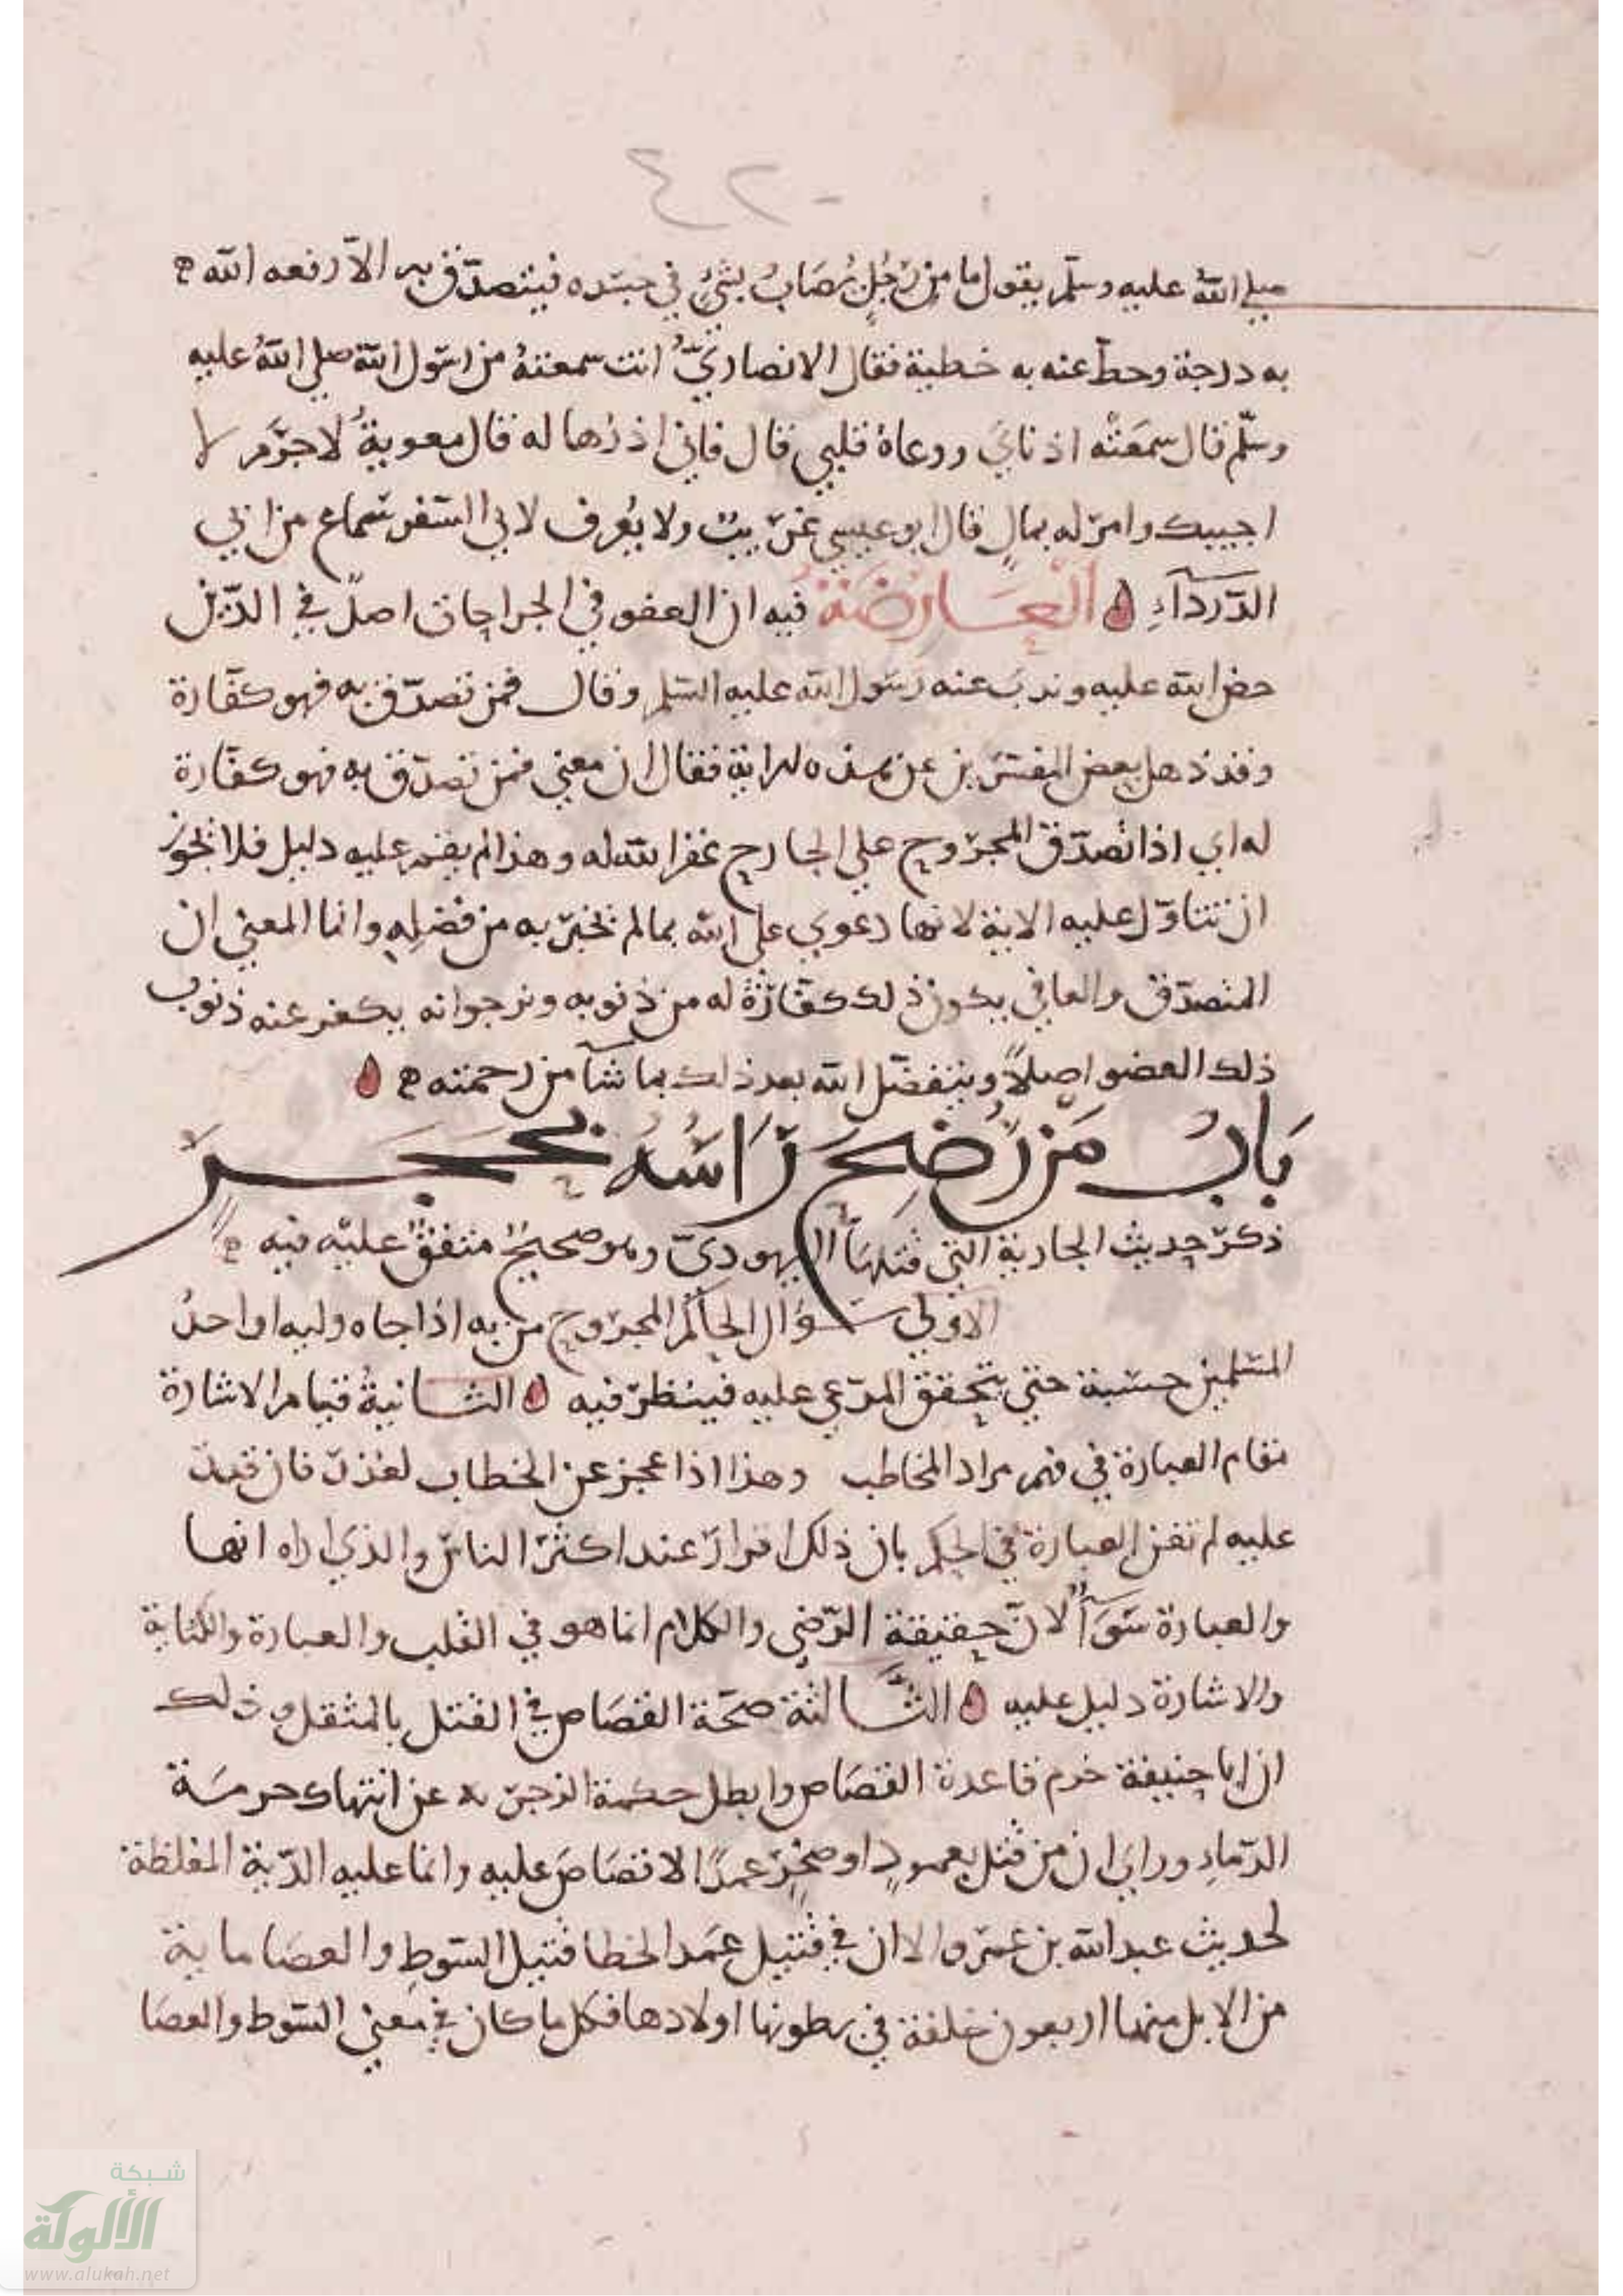 ٤٢٠
صلى الله عليه وسلم يقول ما من رجل يصاب بشيء في جسده فيتصدق به الا رفعه الله
به درجة وحط عنه به خطية فقال الانصاري انت سمعته من رسول الله صلى الله عليه
وسلم قال سمعته اذناي ووعاه قلبي قال فاني اذرها له قال معوية لا جرم لا
اخيبك وامر له بمال قال ابو عيسى غريب ولا يعرف لابي السفر سماع من ابي
الدرداء العارضة فيه ان العفو في الجراحات اصل في الدين
حض الله عليه وندب عنه رسول الله عليه السلم وقال فمن تصدق به فهو كفارة
وقد ذهل بعض المفسرين عن هذه الاية فقال ان معنى فمن تصدق به فهو كفارة
له اي اذا تصدق المجروح على الجارح غفر الله له وهذا لم يقم عليه دليل فلا يجوز
ان تتاول عليه الاية لانها دعوى على الله بما لم يخبر به من فضله وانما المعنى ان
المتصدق والعافي يكون ذلك كفارة له من ذنوبه ونرجوا انه يكفر عنه ذنوب
ذلك العضو اصلا ويتفضل الله بعد ذلك بما شا من رحمته
باب من رضح راسه بحجر
ذكر حديث الجارية التي قتلها اليهودي وهو صحيح متفق عليه فيه
الاولى سوال الحاكم المجروح من به اذا جاه وليه او احد
المسلمين حسبة حتى يتحقق المدعى عليه فينظر فيه الثانية قيام الاشارة
مقام العبارة في فهم مراد المخاطب وهذا اذا عجز عن الخطاب لعذر فان قدر
عليه لم تقم العبارة في الحكم بان ذلك اقرار عند اكثر الناس والذي اراه انها
والعبارة سواء لان حقيقة الرضى والكلام انما هو في القلب والعبارة والكتابة
والاشارة دليل عليه الثالثة صحة القصاص في القتل بالمثقل وذلك
ان ابا حنيفة خرم قاعدة القصاص وابطل حكمة الزجر به عن انتهاك حرمة
الدماء وراى ان من قتل بعمود او صخر عمدا لا قصاص عليه وانما عليه الدية المغلظة
لحديث عبد الله بن عمرو الا ان في قتيل عمد الخطا قتيل السوط والعصا ماية
من الابل منها اربعون خلفة في بطونها اولادها فكل ما كان في معنى السوط والعصا
شبكة
الألوكة
www.alukah.net